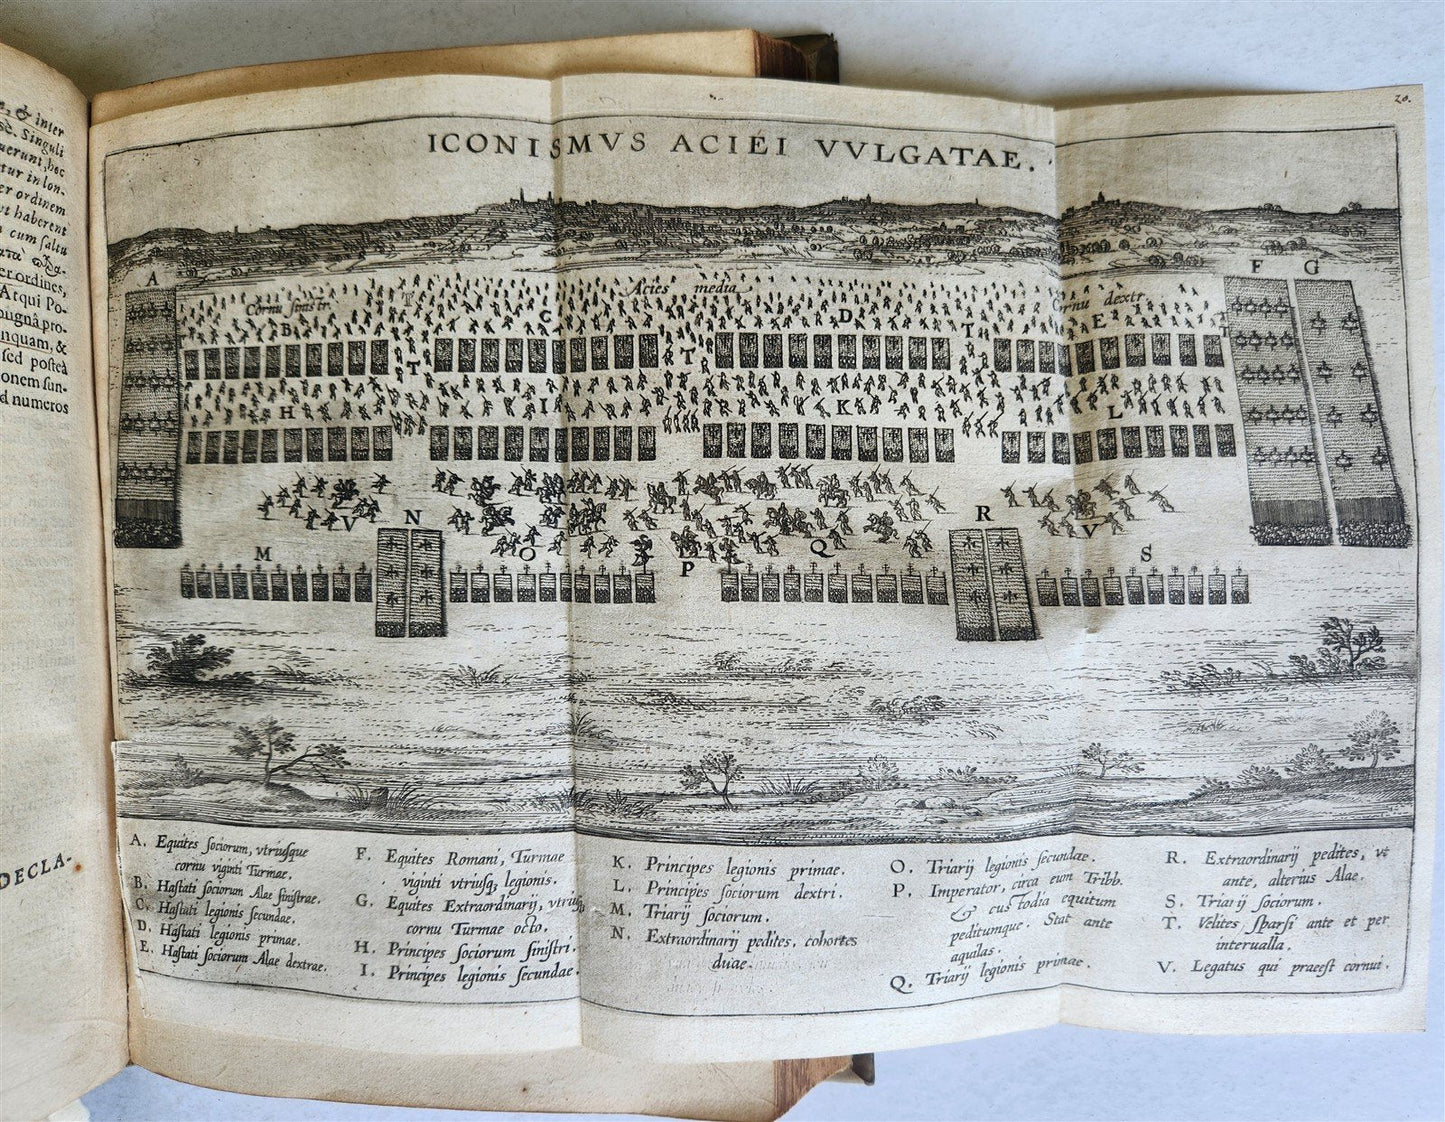 &c inter
sè. Singuli
uerunt, hoc
tur in lon-
er ordinem
vt haberent
cum saltu
er ordines,
Atqui Po-
pugnâ pro-
nquam, &
sed posteà
onem sun-
d numeros
DECLA-
20.
ICONISMVS ACIÉI VVLGATAE.
A
F G
Cornu sinistr.
T
Acies media
Cornu dextr.
B
C
D
T
E
T
T
T
H
I
K
L
V
N
R
V
M
O
P
Q
S
A. Equites sociorum, vtriusque
cornu viginti Turmae,
B. Hastati sociorum Alae sinistrae.
C. Hastati legionis secundae.
D. Hastati legionis primae.
E. Hastati sociorum Alae dextrae.
F. Equites Romani, Turmae
viginti vtriusq; legionis.
G. Equites Extraordinarij, vtriusq;
cornu Turmae octo.
H. Principes sociorum sinistri.
I. Principes legionis secundae.
K. Principes legionis primae.
L. Principes sociorum dextri.
M. Triarij sociorum.
N. Extraordinarij pedites, cohortes
duae.
O. Triarij legionis secundae.
P. Imperator, circa eum Tribb.
& custodia equitum
peditumque. Stat ante
aquilas.
Q. Triarij legionis primae.
R. Extraordinarij pedites, vt
ante, alterius Alae.
S. Triarij sociorum.
T. Velites, sparsi ante et per
interualla.
V. Legatus qui praeest cornui.